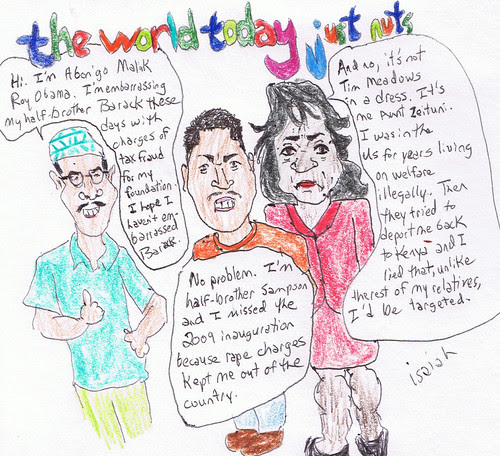 the world today just nuts
Hi. I'm Abongo Malik
Roy Obama. I'm embarrassing
my half-brother Barack these
days with
charges of
tax fraud
for my
foundation.
I hope I
haven't em-
barrassed
Barack.
No problem. I'm
half-brother Sampson
and I missed the
2009 inauguration
because rape charges
kept me out of the
country.
And no, it's not
Tim Meadows
in a dress. It's
me Aunt Zeituni.
I was in the
US for years living
on welfare
illegally. Then
they tried to
deport me back
to Kenya and I
lied that, unlike
the rest of my relatives,
I'd be targeted.
isaiah